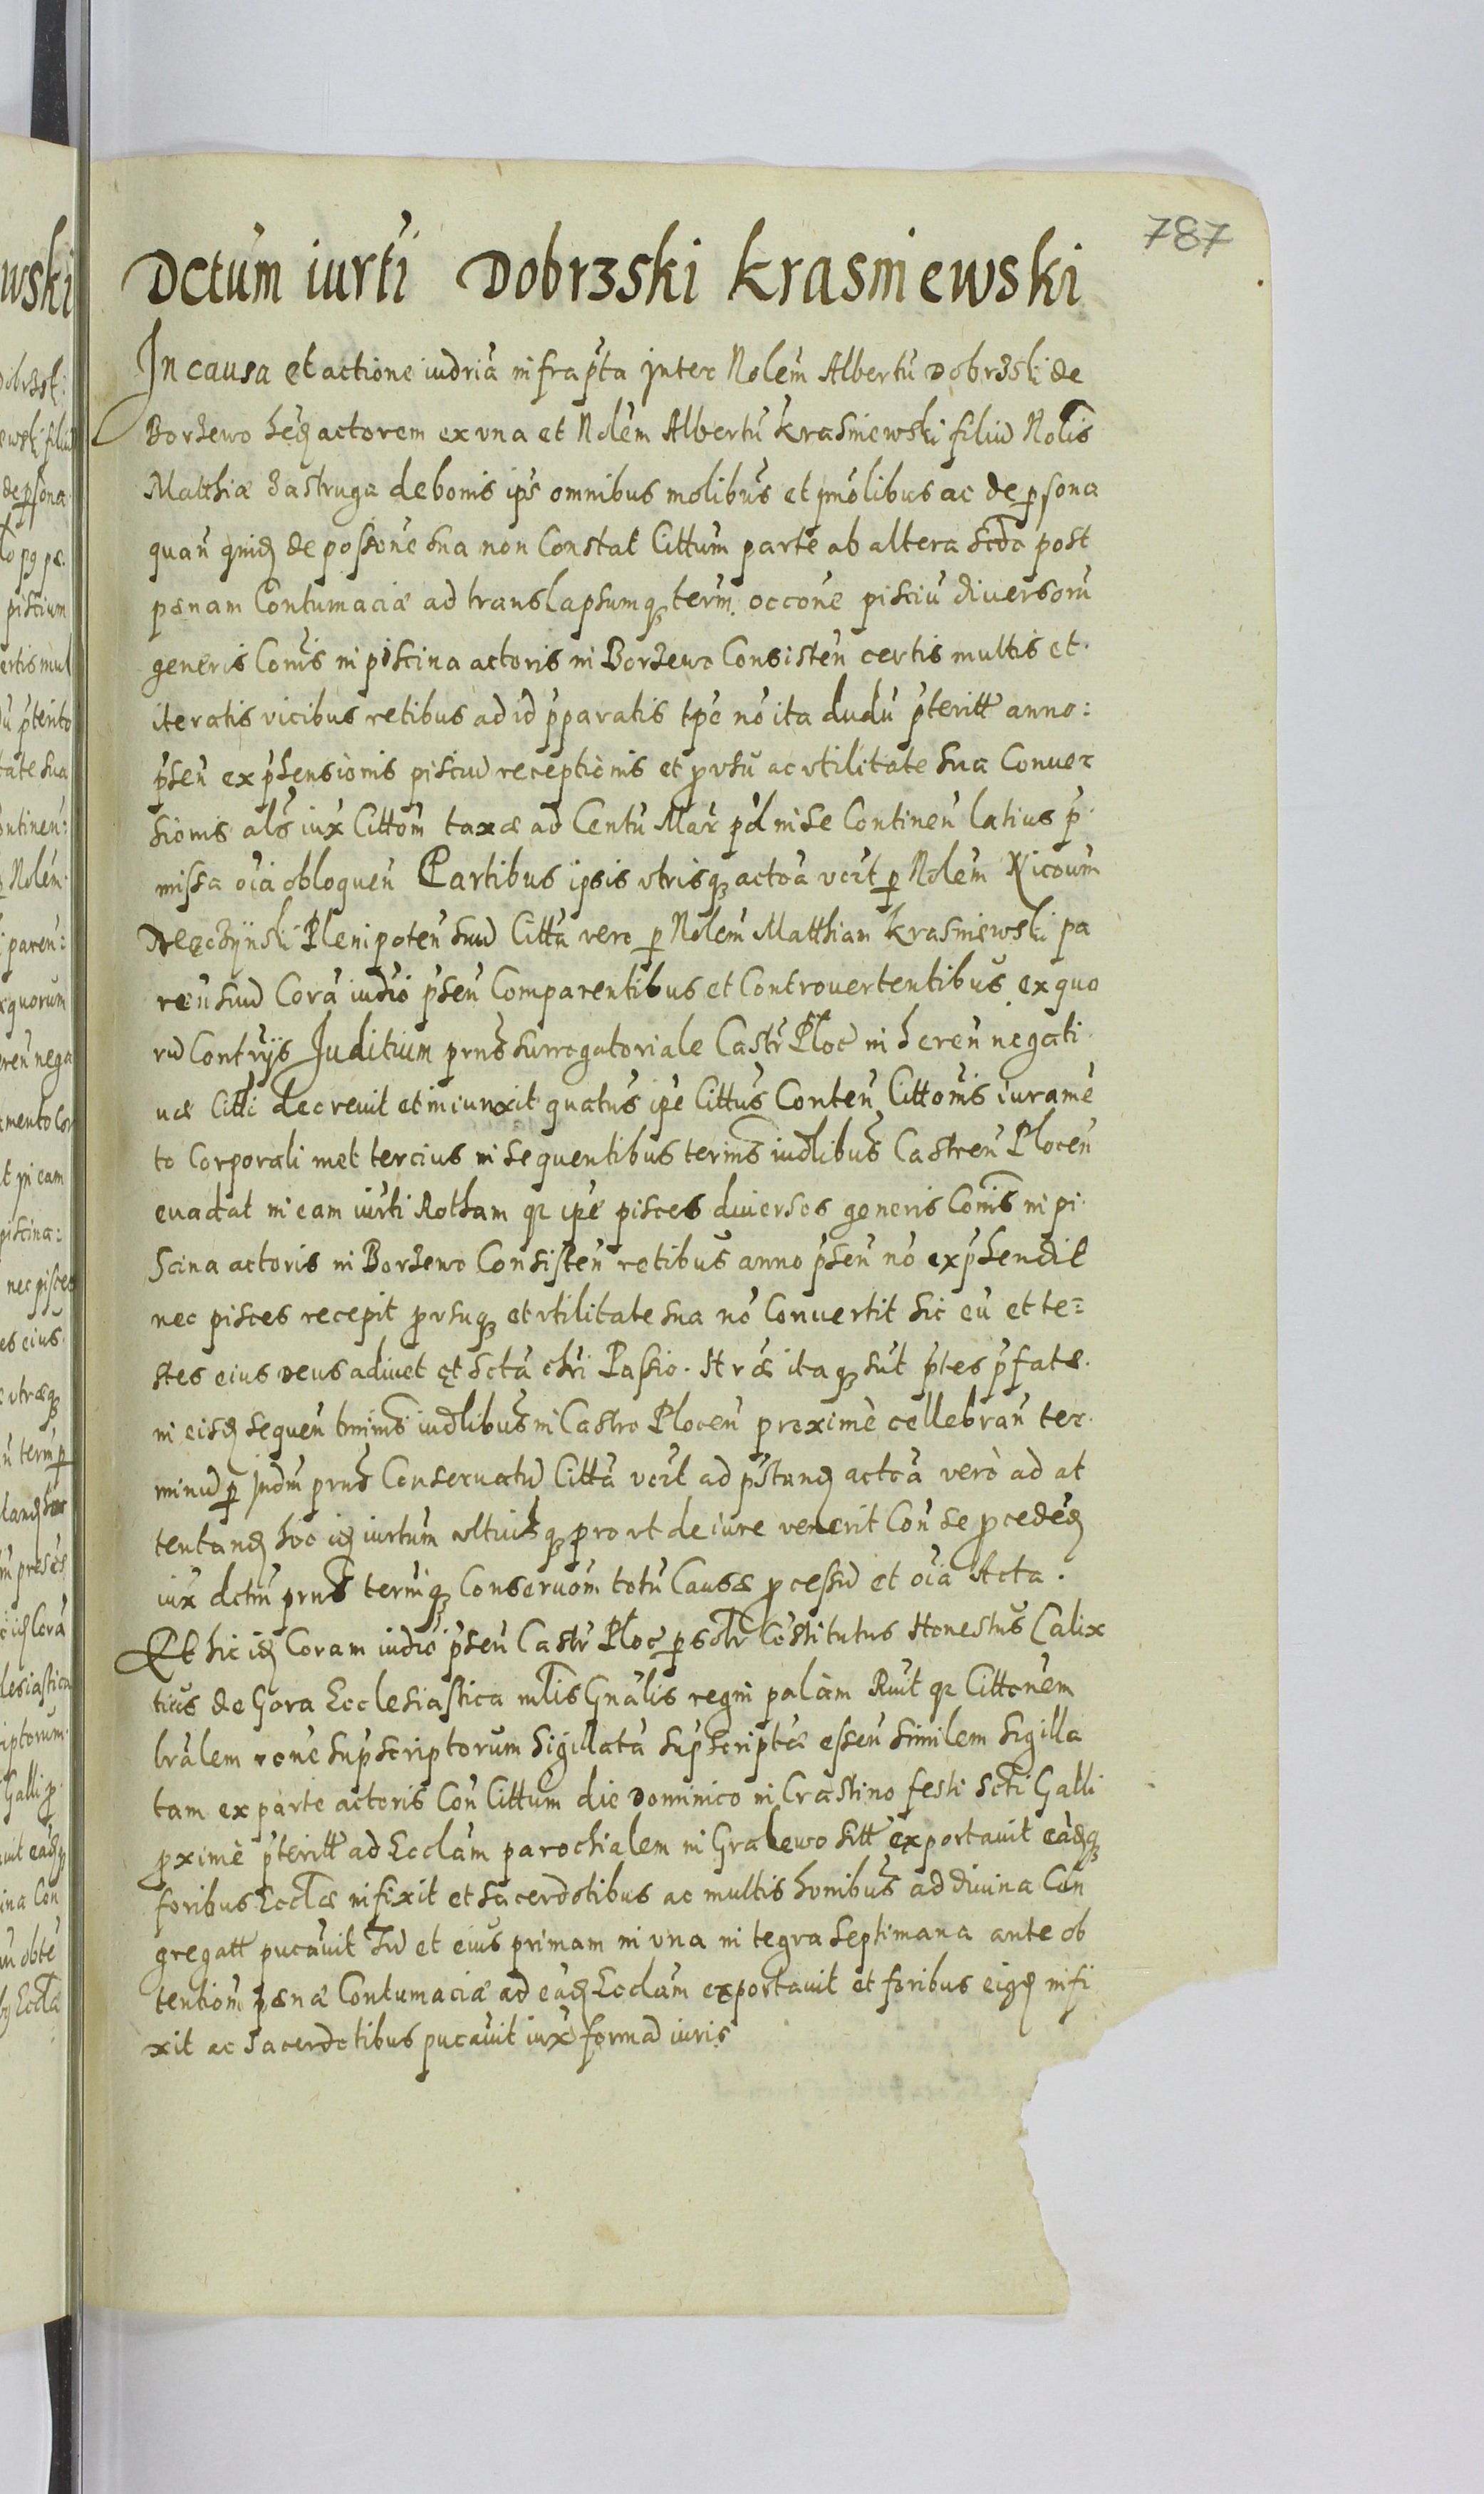 787
Dctum iurti Dobrzski Krasniewski
In causa et actione iudria infrapta inter Nolem Albertu Dobrzski de
Borzewo hęd actorem ex una et Nolem Albertu Krasniewski filiu Nolis
Matthiæ Zastruga de bonis ips omnibus molibus et imolibus ac de psona
quan quid de possone sua non Constat Cittum parte ab altera scdo post
pænam Contumaciæ ad translapsumq term occone pisciu diuersoru
generis Coms in piscina actoris in Borzewo Consisten certis multis et
iteratis vicibus retibus ad id pparatis tpe no ita dudu pteritt anno:
psen exphensionis pisciu receptionis et pusu ac utilitate sua Conuer
sionis als iux Cittom taxæ ad Centu Mar pd in se Continen latius p
missa oia obloquen Partibus ipsis utrisq actoa vert p Nolem Nicoum
Plenipoten suu Citta vero p Nolem Matthiam Krasniewski pa
ren suu Cora iudio psen Comparentibus et Controuertentibus ex quo
ru Contryis Juditium prns surrogatoriale Castr Ploc in heren negati
uæ Citti decreuit et iniunxit quatus ipe Cittus Conten Cittonis iurame
to Corporali met tercius in sequentibus terins iudlibus Castren Plocen
euadat in eam iurti Rotham qr ipe pisces diuersos generis Coms in pi
scina actoris in Borzewo Consisten retibus anno psen no exphendit
nec pisces recepit pusuq et utilitate sua no Conuertit sic eu et te=
stes eius Deus adiuet et scta chri Passio. Itræ itaq sut ptes pfatæ
in eisd sequen tminis iudlibus in Castro Plocen proximè cellebran ter
minu p Judm prns Conseruatu Citta vert ad pstand actoa verò ad at
tentand hoc id iurtum ultuisq prout de iure venerit Con se pcedęd
iux dctm prns termiq Conseruom totu Causæ pcessu et oia Acta.
Et hic id Coram iudio psen Castr Ploc psolr Costitutus Honestus Calix
tius de Gora Ecclesiastica mlis Gnalis regni palàm Ruit qr Cittonem
lralem rone supscriptorum sigillata supscriptæ essen similem sigilla
tam ex parte actoris Con Cittum die Dominico in Crastino festi scti Galli
pximè pteritt ad Ecclam parochialem in Gralewo sitt exportauit eadq
foribus Ecclæ infixit et sacerdotibus ac multis honibus ad diuina Con
gregatt pucauit Tu et eius primam in una integra septimana ante ob
tentiom pænæ Contumaciæ ad ead Ecclam exportauit et foribus eisd infi
xit ac sacerdotibus pucauit iux forma iuris